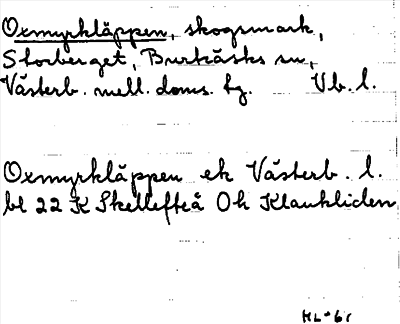 Oxmyrkläppen, skogsmark,
Storberget, Burträsks sn,
Västerb. mell. doms. hg. Vb. l.
Oxmyrkläppen ek Västerb. l.
bl 22 K Skellefteå Oh Klankliden